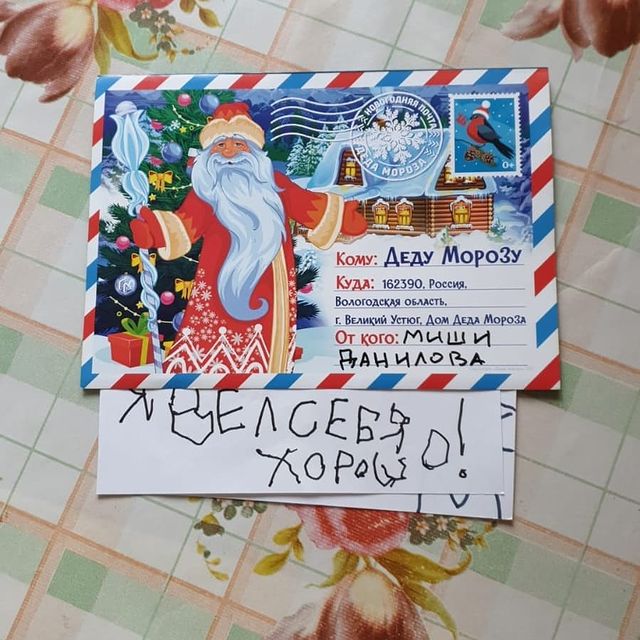 НОВОГОДНЯЯ ПОЧТА
ДЕДА МОРОЗА
0+
Кому: Деду Морозу
Куда: 162390, Россия,
Вологодская область,
г. Великий Устюг, Дом Деда Мороза
От кого: МИШИ
ДАНИЛОВА
Я ВЕЛ СЕБЯ
ХОРОШО!